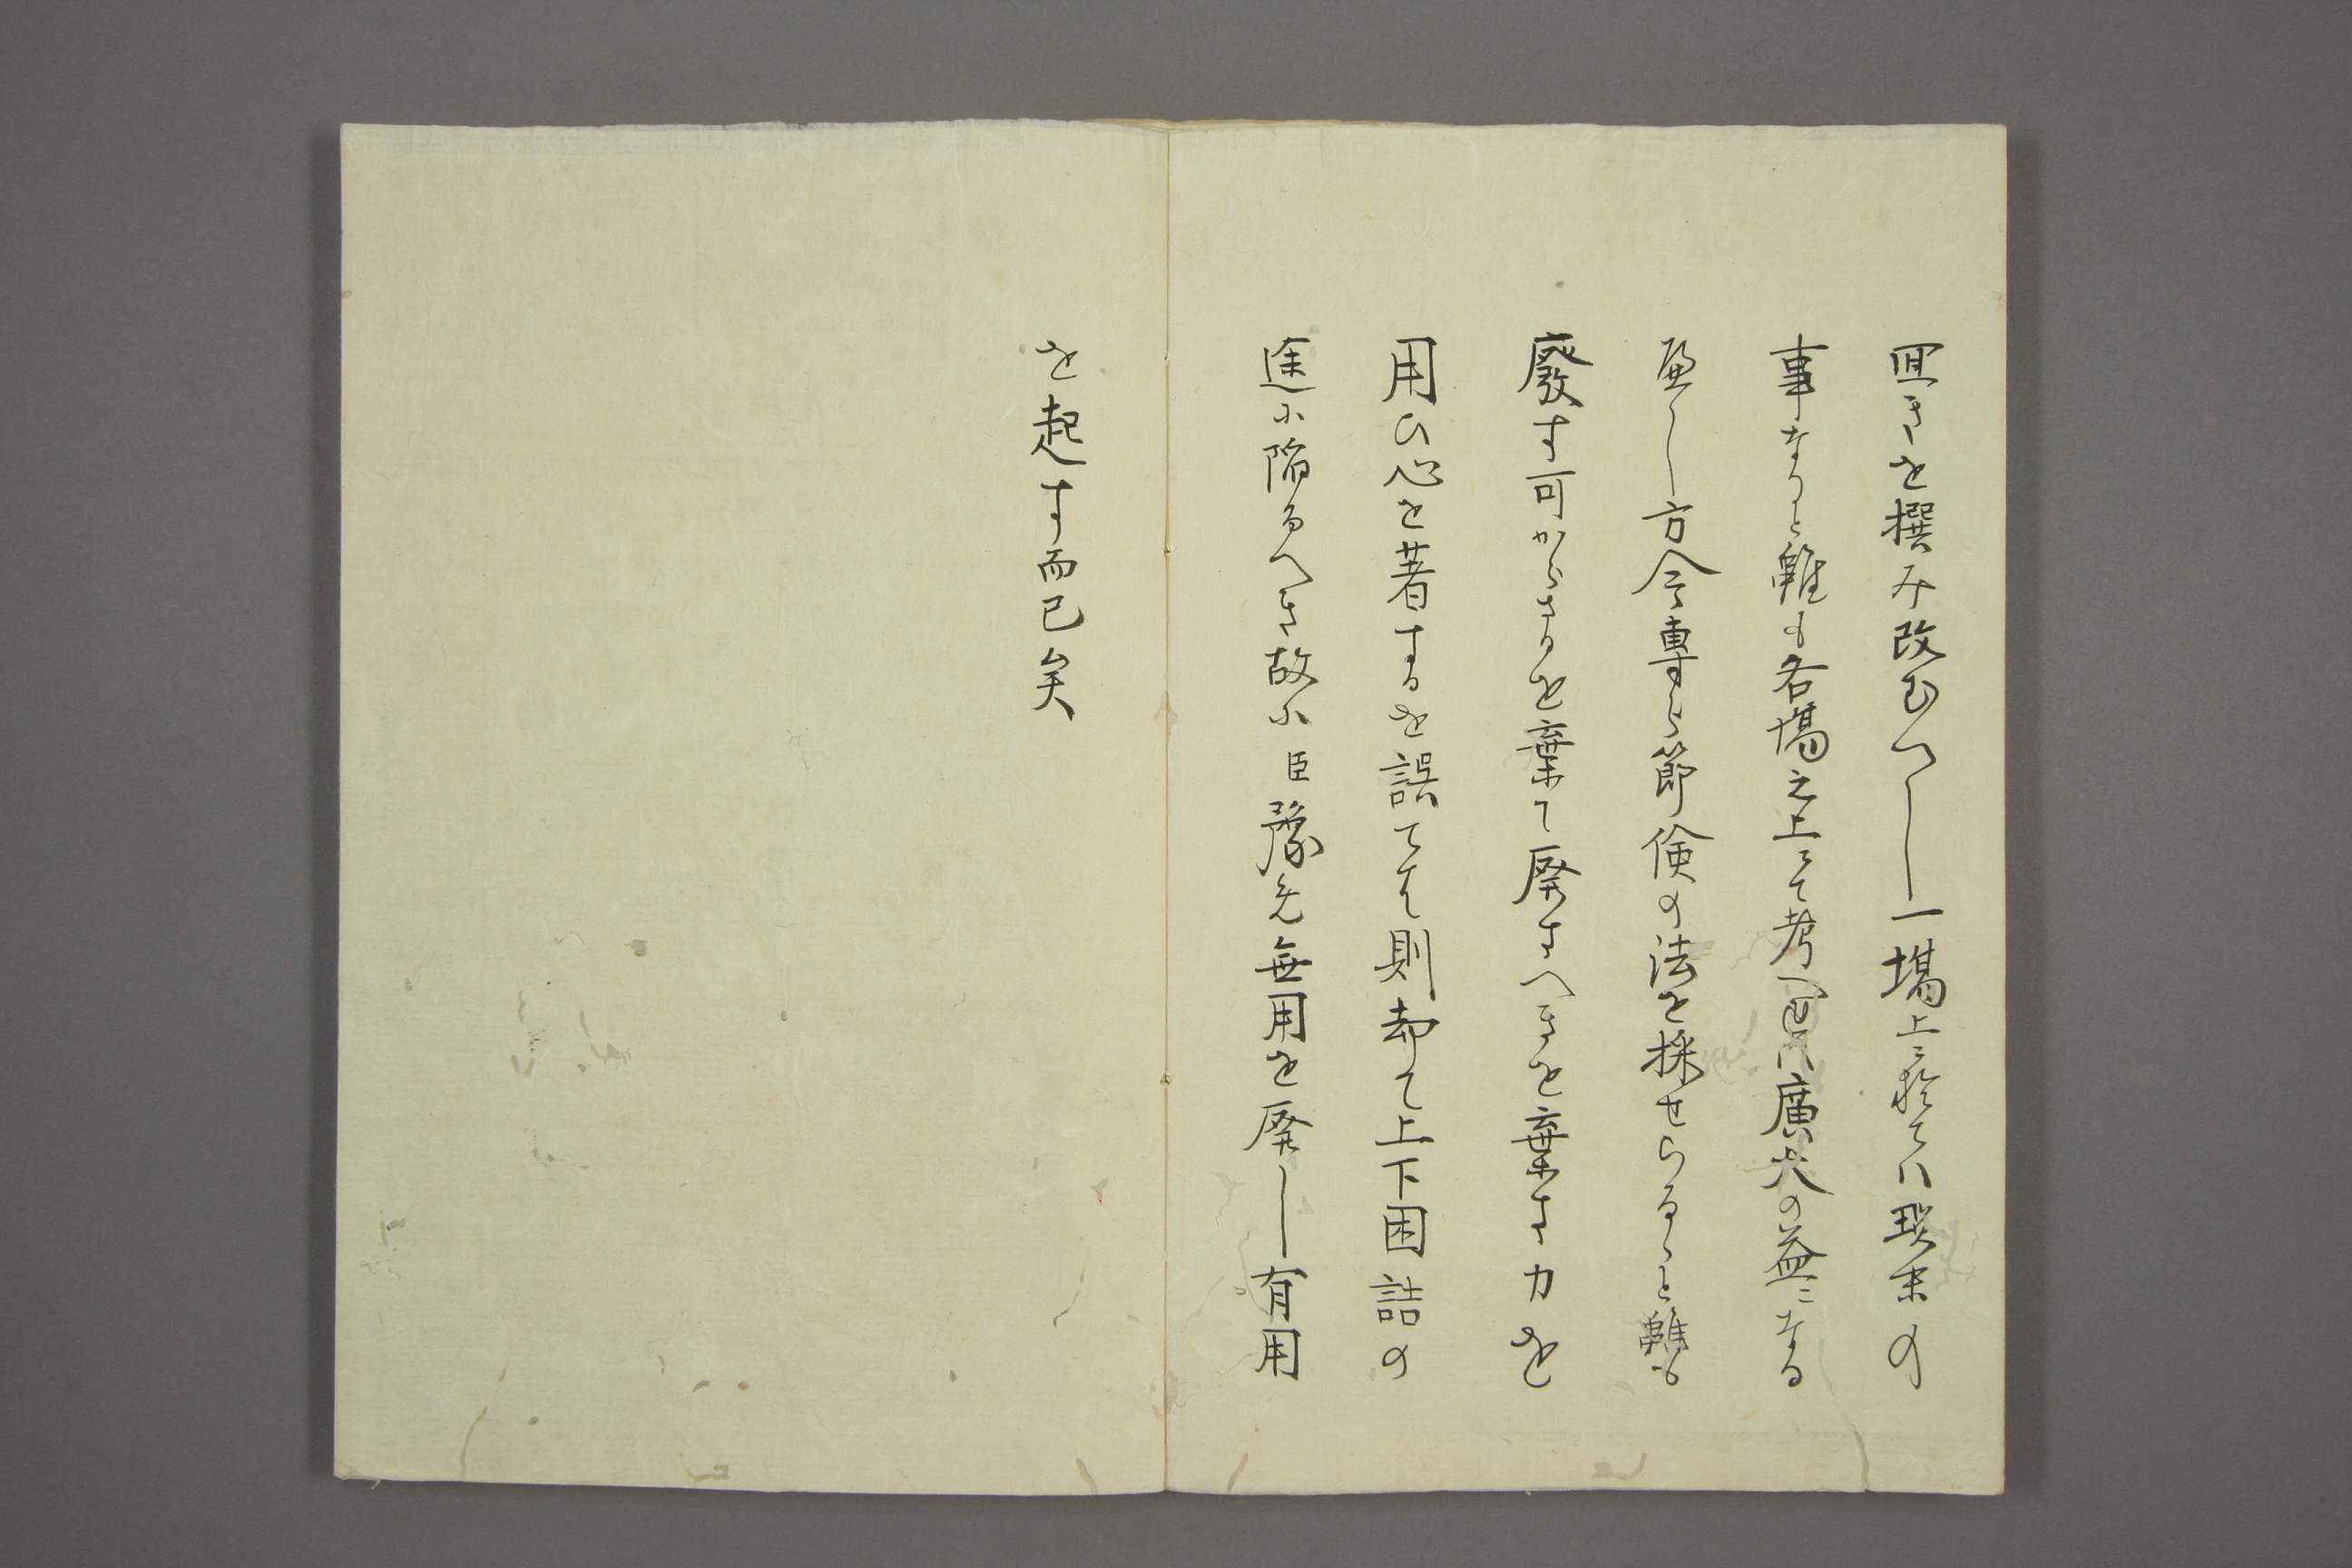 宜きを撰み改むへし一場上ニ於てハ瑣末の
事なりと雖も各場之上ニて考へ廣大の益ニなる
へし方今専ら節倹の法を採せらるゝと雖も
廢す可からさるを棄て廃すへきを棄す力を
用ひ心を著するを誤てれは則却て上下困詰の
途に陥るへき故に臣豫先無用を廃し有用
を起す而已矣